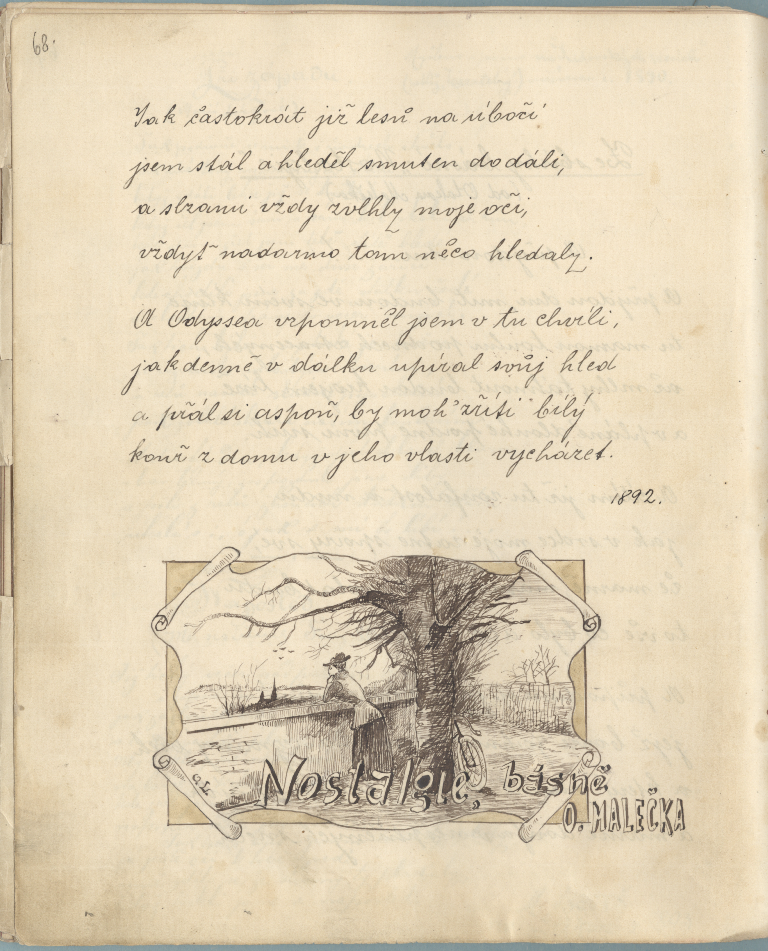 68.
Jak častokrát již lesů na úbočí
jsem stál a hleděl smuten do dáli,
a slzami vždy zvlhly moje oči,
vždyť nadarmo tam něco hledaly.
A Odyssea vzpomněl jsem v tu chvíli,
jak denně v dálku upíral svůj hled
a přál si aspoň, by moh' zříti bílý
kouř z domu v jeho vlasti vycházet.
1892.
Nostalgie, básně
O. MALEČKA